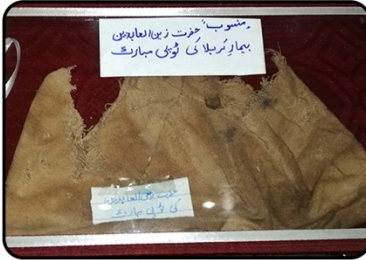 "منسوب" حضرت زین العابدین
بیمارِ کربلا کی ٹوپی مبارک
العابدین
کی ٹوپی مبارک